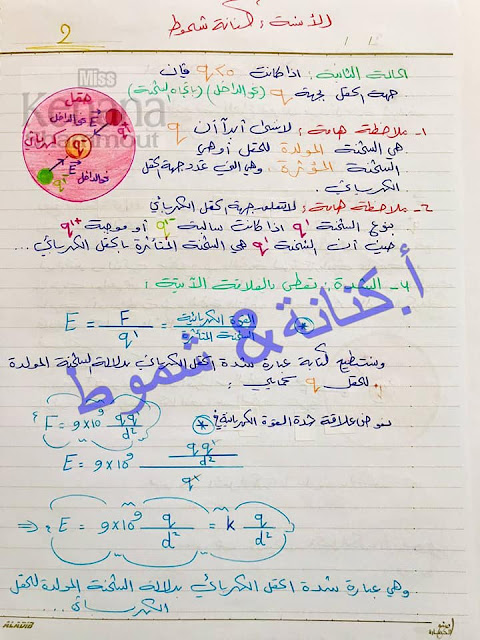 الآنسة: كنانة شموط
2
الحالة الثانية: اذا كانت q<0 فإن
جهة الحقل بجهة q (نحو الداخل) (باتجاه الشحنة)
Miss
Kenana
Shammout
حقل
نحو الداخل E
q'+
كهربائي
q-
E
q'-
نحو الداخل
1- ملاحظة هامة: لا ننسى أبداً أن q
هي الشحنة المولدة للحقل أو هي
الشحنة المؤثرة. وهي التي تحدد جهة الحقل
الكهربائي.
2- ملاحظة هامة: لا تتعلق جهة الحقل الكهربائي
بنوع الشحنة q' اذا كانت سالبة q'- أو موجبة q'+
حيث أن الشحنة q' هي الشحنة المتأثرة بالحقل الكهربائي....
4- الشدة: تعطى بالعلاقة الآتية:
E = F/q' = القوة الكهربائية/الشحنة المتأثرة *
ونستطيع كتابة عبارة شدة الحقل الكهربائي بدلالة الشحنة المولدة
للحقل q كمايلي:
نعوض علاقة شدة القوة الكهربائية في *
F = 9×10⁹ qq'/d²
E = 9×10⁹ (qq'/d²)/q'
⇒ E = 9×10⁹ q/d² = k q/d²
وهي عبارة شدة الحقل الكهربائي بدلالة الشحنة المولدة للحقل
الكهربائي....
أ.كنانة & شموط
ALADIB